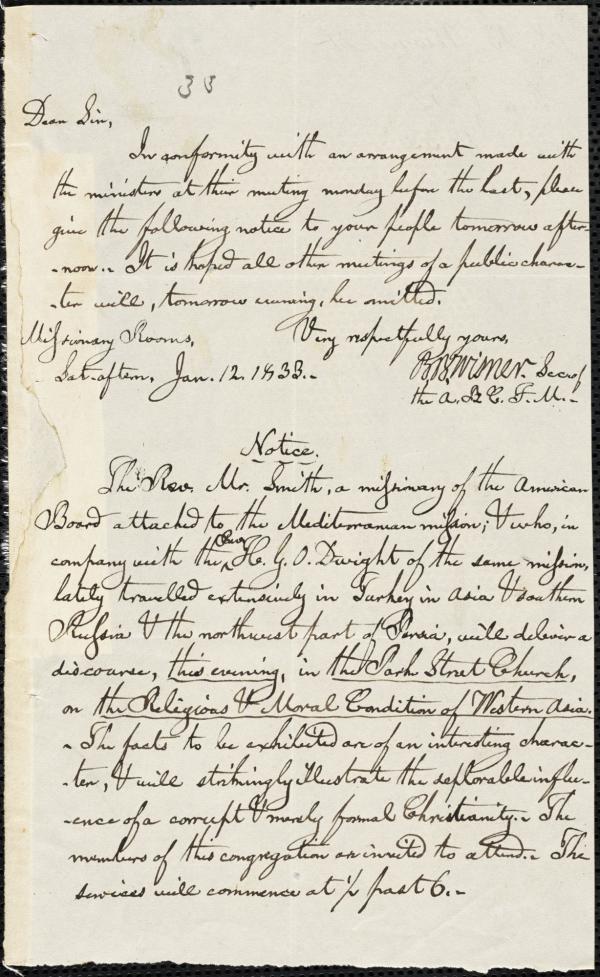 33
Dear Sir,
In conformity with an arrangement made with
the ministers at their meeting monday before the last, please
give the following notice to your people tomorrow after-
-noon.- It is hoped all other meetings of a public charac-
-ter will, tomorrow evening, be omitted.
Missionary Rooms, Very respectfully yours,
Sat. aftern, Jan. 12. 1833.- B. B. Wisner. Sec. of
the A. B. C. F. M.-
Notice.
The Rev. Mr. Smith, a missionary of the American
Board attached to the Mediterranean mission; & who, in
company with the Rev. H. G. O. Dwight of the same mission,
lately travelled extensively in Turkey in Asia & southern
Russia & the northwest part of Persia, will deliver a
discourse, this evening, in the Park Street Church,
on the Religious & Moral Condition of Western Asia.
- The facts to be exhibited are of an interesting charac-
-ter, & will strikingly illustrate the deplorable influ-
-ence of a corrupt & merely formal Christianity.- The
members of this congregation are invited to attend.- The
services will commence at ½ past 6.-